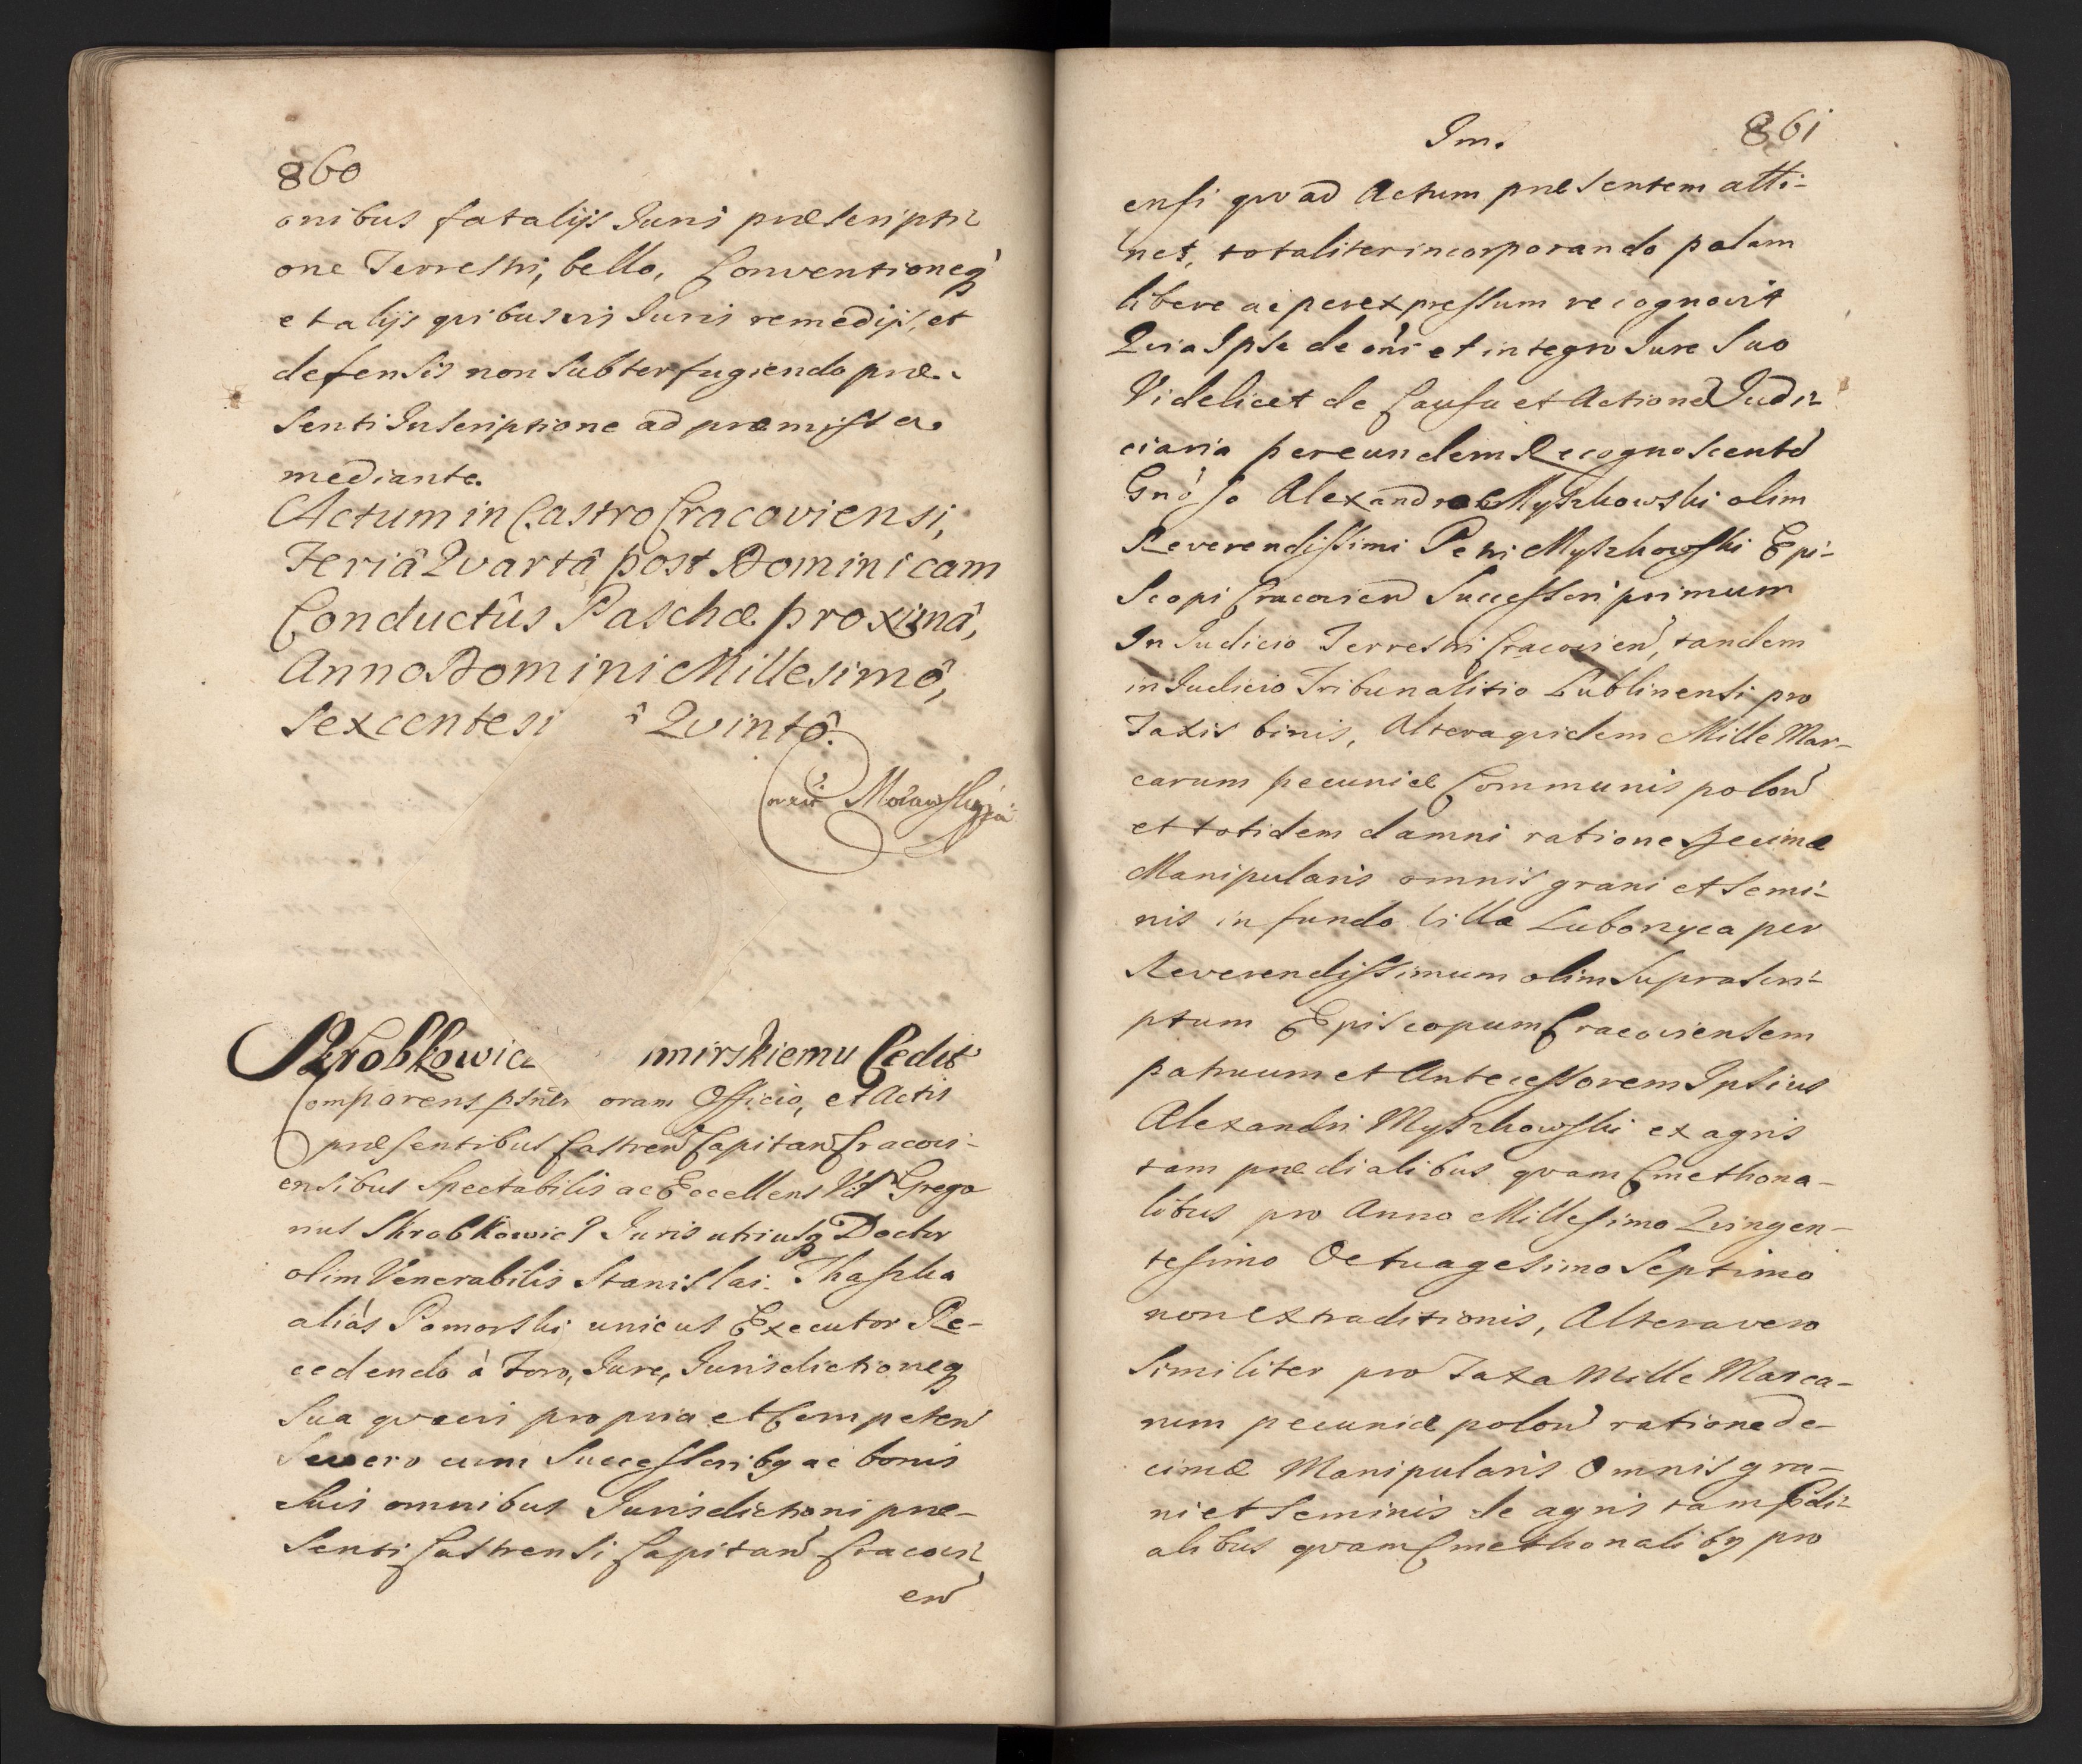 860
onibus fatalijs Juris præscripti
one Terrestri, bello, Conventioneq₃
et alijs qvibusvis Juris remedijs, et
defensis non subterfugiendo præ-
senti Inscriptione ad præmissa
mediante.
Actum in Castro Cracoviensi,
Feriâ Qvartâ post Dominicam
Conductûs Paschæ proximâ,
Anno Domini Millesimô,
Sexcentesi ô Qvintô.
Skrobkowic mirskiemu Cedit
Comparens psnłr oram Officio, et Actis
præsentibus Castren Capitan Cracovi-
ensibus Spectabilis ac Excellens Grego
rius Skrobkowicz Juris utriusq₃ Doctor
olim Venerabilis Stanislai Thaszka
aliàs Pomorski unicus Executor Re-
cedendo à Foro, Jure, Jurisdictioneq₃
Sua qvavis propria et Competen
Se vero cum Successorib₉ ac bonis
Suis omnibus Jurisdictioni præ-
senti Castrensi Capitan Cracovi
en
Im. 861
ensi qvoad Actum præsentem atti-
net, totaliter incorporando palam
libere ac per expressum recognovit
Qvia Ipse de oñi et integro Jure Suo
Videlicet de Causa et Actione Judi-
ciaria per eundem Recognoscente
Gnoso Alexandro Myszkowski olim
Reverendissimi Petri Myszkowski Epi-
Scopi Cracovien Successori primum
In Judicio Terrestri Cracovien, tandem
in Judicio Tribunalitio Lublinensi pro
Taxis binis, Altera qvidem Mille Mar-
carum pecuniæ Communis polon
et totidem damni ratione Decimæ
Manipularis omnis grani et Semi-
nis in fundo Villa Luborzyca per
Reverendissimum olim Suprascri-
ptum Episcopum Cracoviensem
patruum et Antecessorem Ipsius
Alexandri Myszkowski ex agris
tam prædialibus qvam Cmethona-
libus pro Anno Millesimo Qvingen-
tesimo Octuagesimo Septimo
non extraditionis, Altera vero
Similiter pro Taxa Mille Marca-
rum pecuniæ polon ratione de-
cimæ Manipularis Omnis gra-
ni et Seminis de agris tam prædi-
alibus qvam Cmethonalib₉ pro